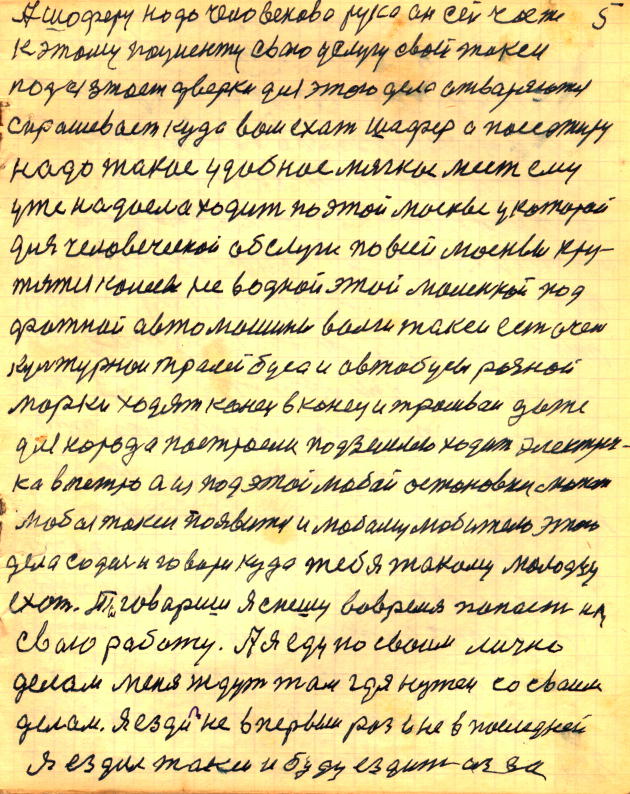 А шоферу надо человекова рука он сей час 5
к этому моменту свою услугу свой такси
дверки для этого дела отваряются
спрашевает куда вам ехат шафер а посажиру
надо такое удобное мяхкое мест ему
уже надоела ходит по этой москве у которой
для человеческой обслуги по всей москвы кру-
не водной этой маленкой под
автомашины волги такси ест очен
културнои тралейбуса и автобусы разной
марки ходят конец в конец и трамваи даже
для народа построели подземлею ходит электри-
ка в метро а из под этой любой остановки может
любая такси появится и любому любителю этого
дела садис и говори куда тебя такому молодцу
ехат. Ты говариш я спешу вовремя попаст на
свою работу. А я еду по своим лично
делам меня ждут там где я нужен со своим
делам. Я езди не в первый раз и не в последней
Я ездил такси и буду ездит из за